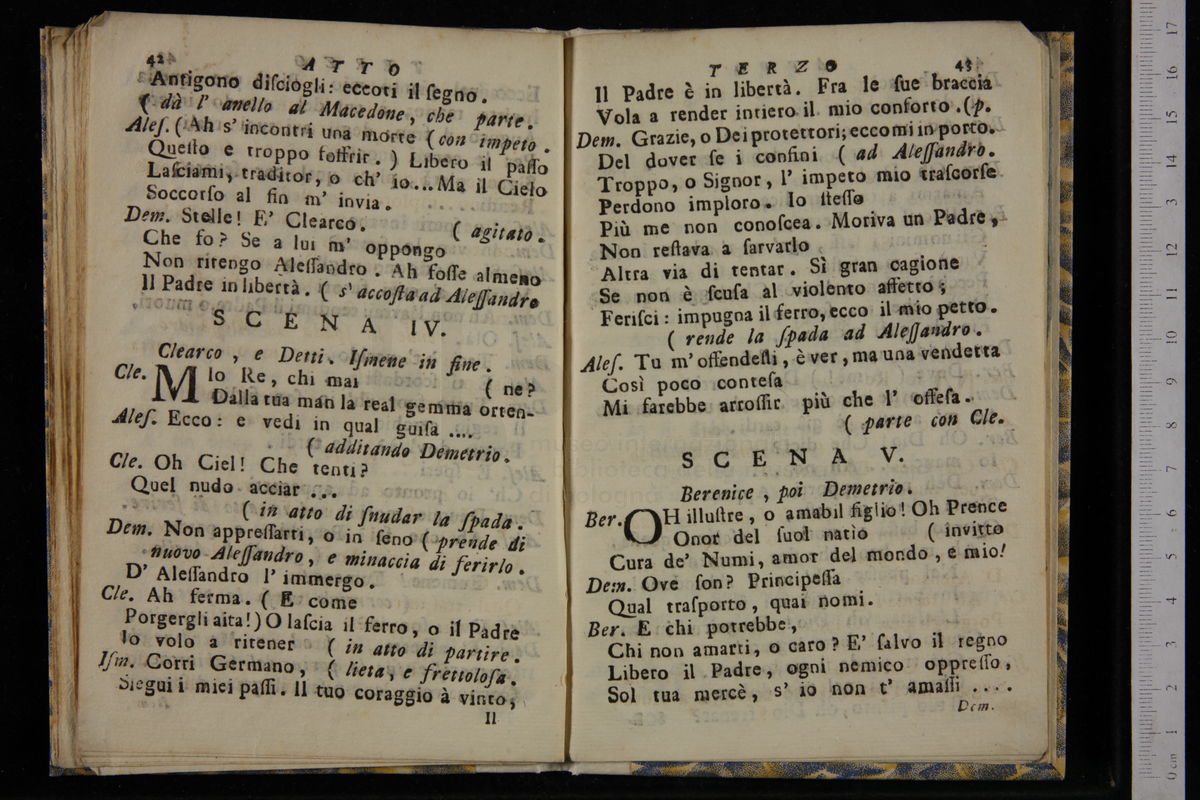 42
ATTO
Antigono diſciogli: eccoti il ſegno.
( dà l' anello al Macedone, che parte.
Aleſ. (Ah s' incontri una morte (con impeto.
Queſto e troppo ſoffrir. ) Libero il paſſo
Laſciami, traditor, o ch' io...Ma il Cielo
Soccorſo al fin m' invia.
Dem. Stelle! E' Clearco. ( agitato.
Che fo? Se a lui m' oppongo
Non ritengo Aleſſandro. Ah foſſe almeno
Il Padre in libertà. ( s' accoſta ad Aleſſandro
SCENA IV.
Clearco, e Detti. Iſmene in fine.
Cle. MIo Re, chi mai ( ne?
Dalla tua man la real gemma otten-
Aleſ. Ecco: e vedi in qual guiſa ....
( additando Demetrio.
Cle. Oh Ciel! Che tenti?
Quel nudo acciar ...
( in atto di ſnudar la ſpada.
Dem. Non appreſſarti, o in ſeno ( prende di
nuovo Aleſſandro, e minaccia di ferirlo.
D' Aleſſandro l' immergo.
Cle. Ah ferma. ( E come
Porgergli aita!) O laſcia il ferro, o il Padre
Io volo a ritener ( in atto di partire.
Iſm. Corri Germano, ( lieta, e frettoloſa.
Siegui i miei paſſi. Il tuo coraggio à vinto,
Il
TERZO
43
Il Padre è in libertà. Fra le ſue braccia
Vola a render intiero il mio conforto.(p.
Dem. Grazie, o Dei protettori; eccomi in porto.
Del dover ſe i confini ( ad Aleſſandro.
Troppo, o Signor, l' impeto mio traſcorſe
Perdono imploro. Io ſteſſo
Più me non conoſcea. Moriva un Padre,
Non reſtava a ſarvarlo
Altra via di tentar. Sì gran cagione
Se non è ſcuſa al violento affetto;
Feriſci: impugna il ferro, ecco il mio petto.
( rende la ſpada ad Aleſſandro.
Aleſ. Tu m' offendeſti, è ver, ma una vendetta
Così poco conteſa
Mi farebbe arroſſir più che l' offeſa.
( parte con Cle.
SCENA V.
Berenice, poi Demetrio.
Ber. OH illuſtre, o amabil figlio! Oh Prence
Onor del ſuol natìo ( invitto
Cura de' Numi, amor del mondo, e mio!
Dem. Ove ſon? Principeſſa
Qual traſporto, quai nomi.
Ber. E chi potrebbe,
Chi non amarti, o caro? E' ſalvo il regno
Libero il Padre, ogni nemico oppreſſo,
Sol tua mercè, s' io non t' amaſſi ....
Dem.